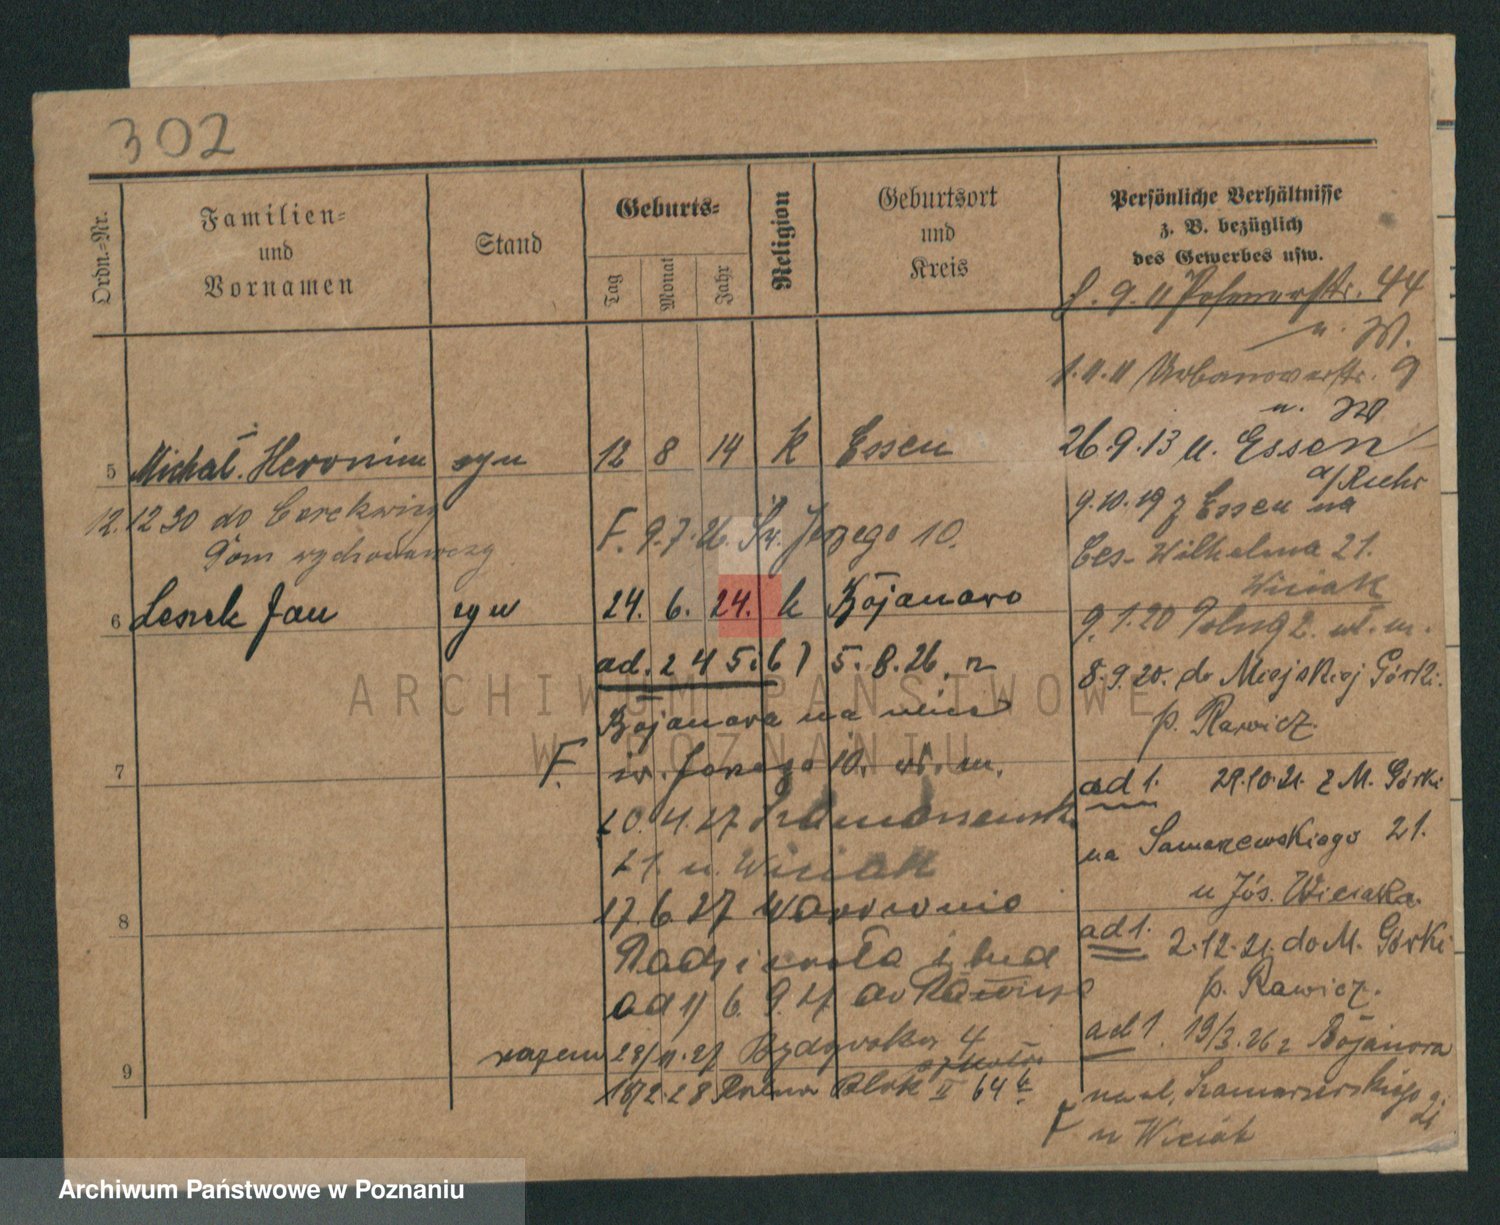 302
Ordn.-Nr.
Familien-
und
Vornamen
Stand
Geburts-
Tag
Monat
Jahr
Religion
Geburtsort
und
Kreis
Persönliche Verhältnisse
z. B. bezüglich
des Gewerbes usw.
9. 11 Posenerstr. 44
u. W.
1.11.11 Urbanowerstr. 9
u. W
5 Michał. Heronim syn 12 8 14 k Essen
26.9.13 u. Essen
a/Ruhr
12.12 30 do Cerekwicy
Dom wychowawczy
F. 9.7.26. Św. Jerzego 10.
9.10.19 z Essen na
Ces. Wilhelma 21.
Wiciak
6 Leszek Jan syn 24. 6. 24. k Bojanowo
9.1.20 2. wł. m.
ad. 2 4 5 i 6) 5. 8. 26. z
Bojanowa na
8.9.20. do Miejskiej Górki.
p. Rawicz.
7
F. św. Jerzego 10. wł. m.
ad 1. 29.10.21. z M. Górki
20.4.27
na Samarzewskiego 21.
21. u. Wiciak
u Józ. Wiciaka.
8
17 6 27
ad 1. 2.12.21. do M. Górki
p. Rawicz.
ad 1) 6. 9. 27 do
ad 1. 19/3.26 z Bojanowa
razem 28/11.27 Bydgoska 4
9
18/2.28 Blok II 64
na ul. Szamarzewskiego
21
F u Wiciak
ARCHIWUM PAŃSTWOWE
W POZNANIU
Archiwum Państwowe w Poznaniu